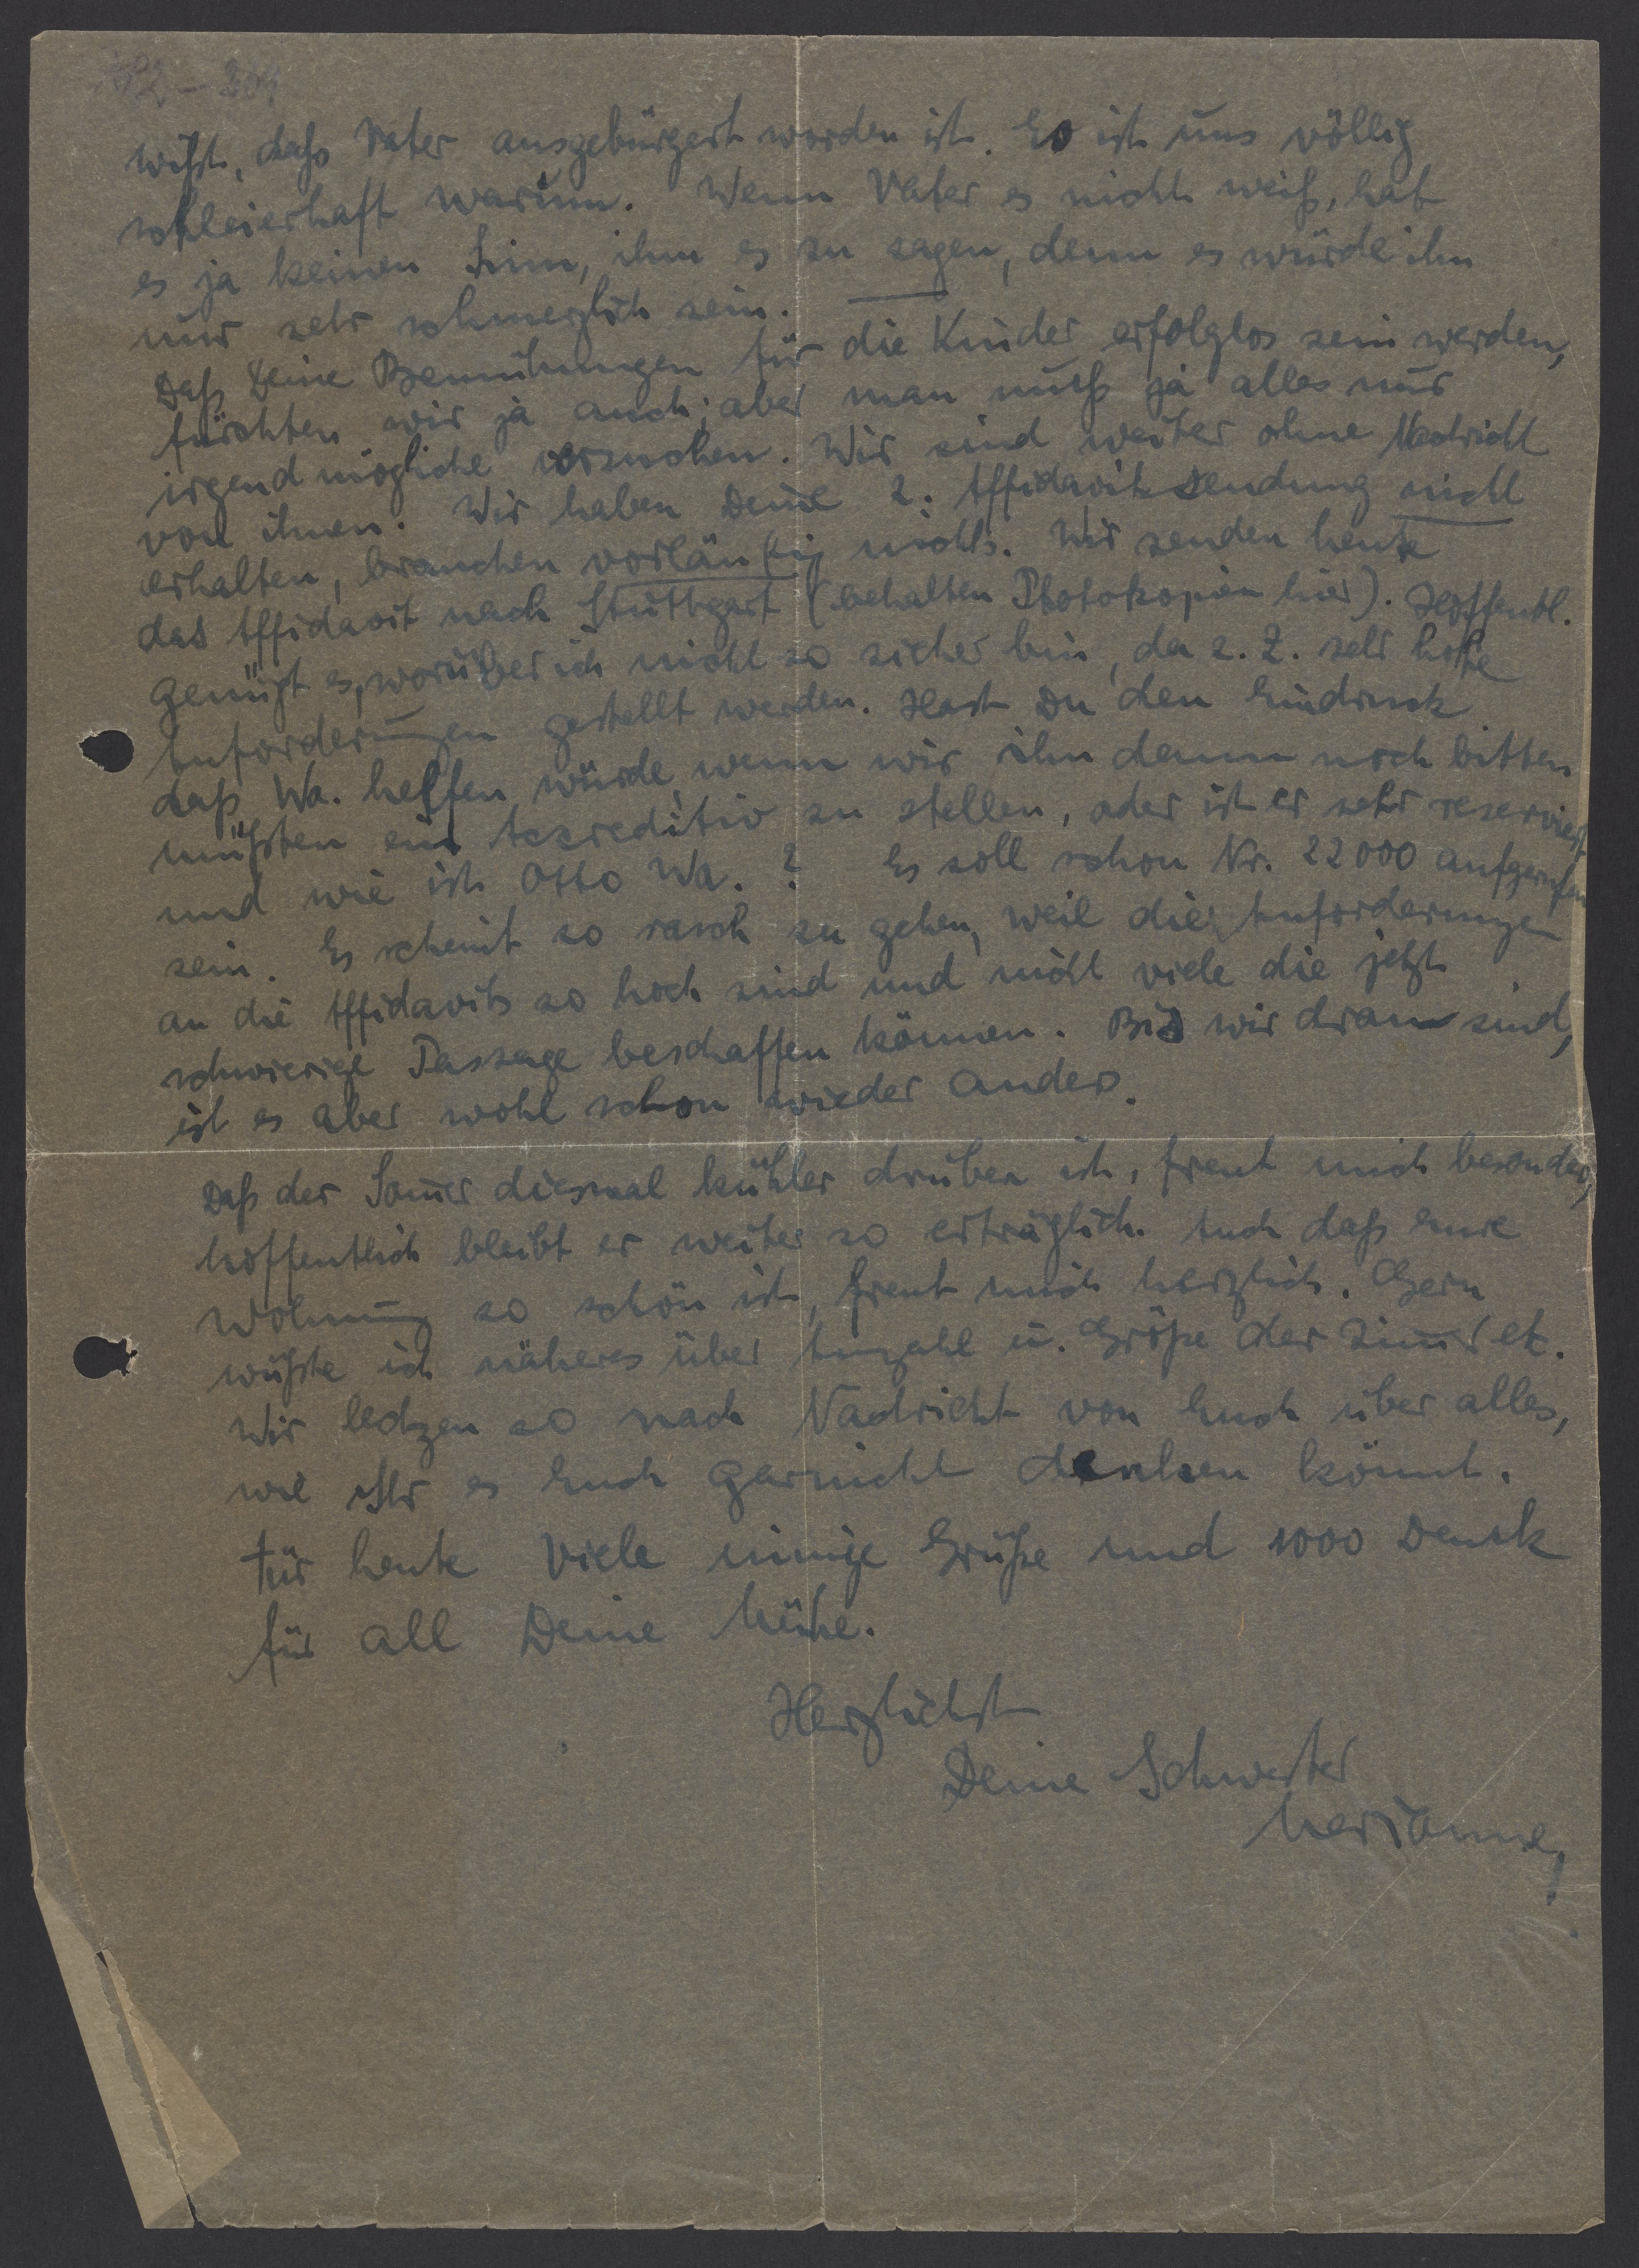 wißt, daß Vater ausgebürgert worden ist. Es ist uns völlig
schleierhaft warum. Wenn Vater es nicht weiß, hat
es ja keinen Sinn, ihm es zu sagen, denn es würde ihm
nur sehr schmerzlich sein.
Daß Deine Bemühungen für die Kinder erfolglos sein werden,
fürchten wir ja auch; aber man muß ja alles nur
irgend mögliche versuchen. Wir sind weiter ohne Nachricht
von ihnen. Wir haben Deine 2. Affidavitsendung nicht
erhalten, brauchen vorläufig nichts. Wir senden heute
das Affidavit nach Stuttgart (behalten Photokopien hier). Hoffentl.
genügt es, worüber ich nicht so sicher bin, da z. Z. sehr hohe
Anforderungen gestellt werden. Hast Du den Eindruck
daß Wa. helfen würde, wenn wir ihn dennnoch bitten
müßten ein Akkreditiv zu stellen, oder ist er sehr reserviert
und wie ist Otto Wa.? Es soll schon Nr. 22000 aufgerufen
sein. Es scheint so rasch zu gehen, weil die Anforderungen
an die Affidavits so hoch sind und nicht viele die jetzt
schwierige Passage beschaffen können. Bis wir dran sind,
ist es aber wohl schon wieder anders.
Daß der Som̅er diesmal kühler drüben ist, freut mich besonders,
hoffentlich bleibt er weiter so erträglich. Auch daß Eure
Wohnung so schön ist, freut mich herzlich. Gern
wüßte ich näheres über Anzahl u. Größe der Zim̅er etc.
Wir lechzen so nach Nachricht von Euch über alles,
wie Ihr es Euch garnicht denken könnt.
Für heute viele innige Grüße und 1000 Dank
für all Deine Mühe.
Herzlichst
Deine Schwester
Marianne,